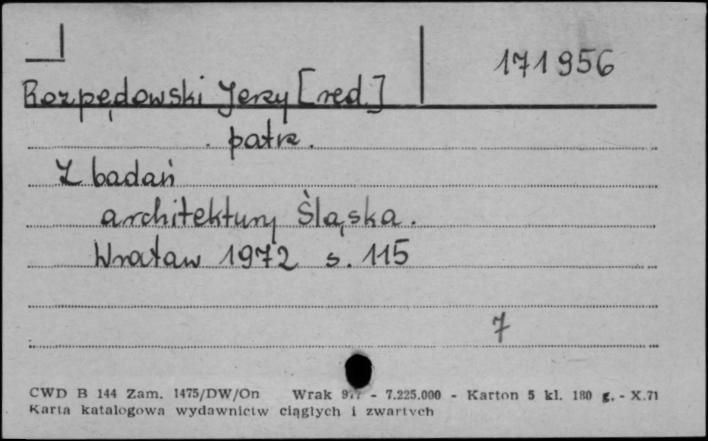 171956
Rozpędowski Jerzy [red.]
patrz.
Z badań
architektury Śląska.
Wrocław 1972 s. 115
7
CWD B 144 Zam. 1475/DW/On Wrak - 7.225.000 - Karton 5 kl. 180 g. - X.71
Karta katalogowa wydawnictw ciągłych i zwartych